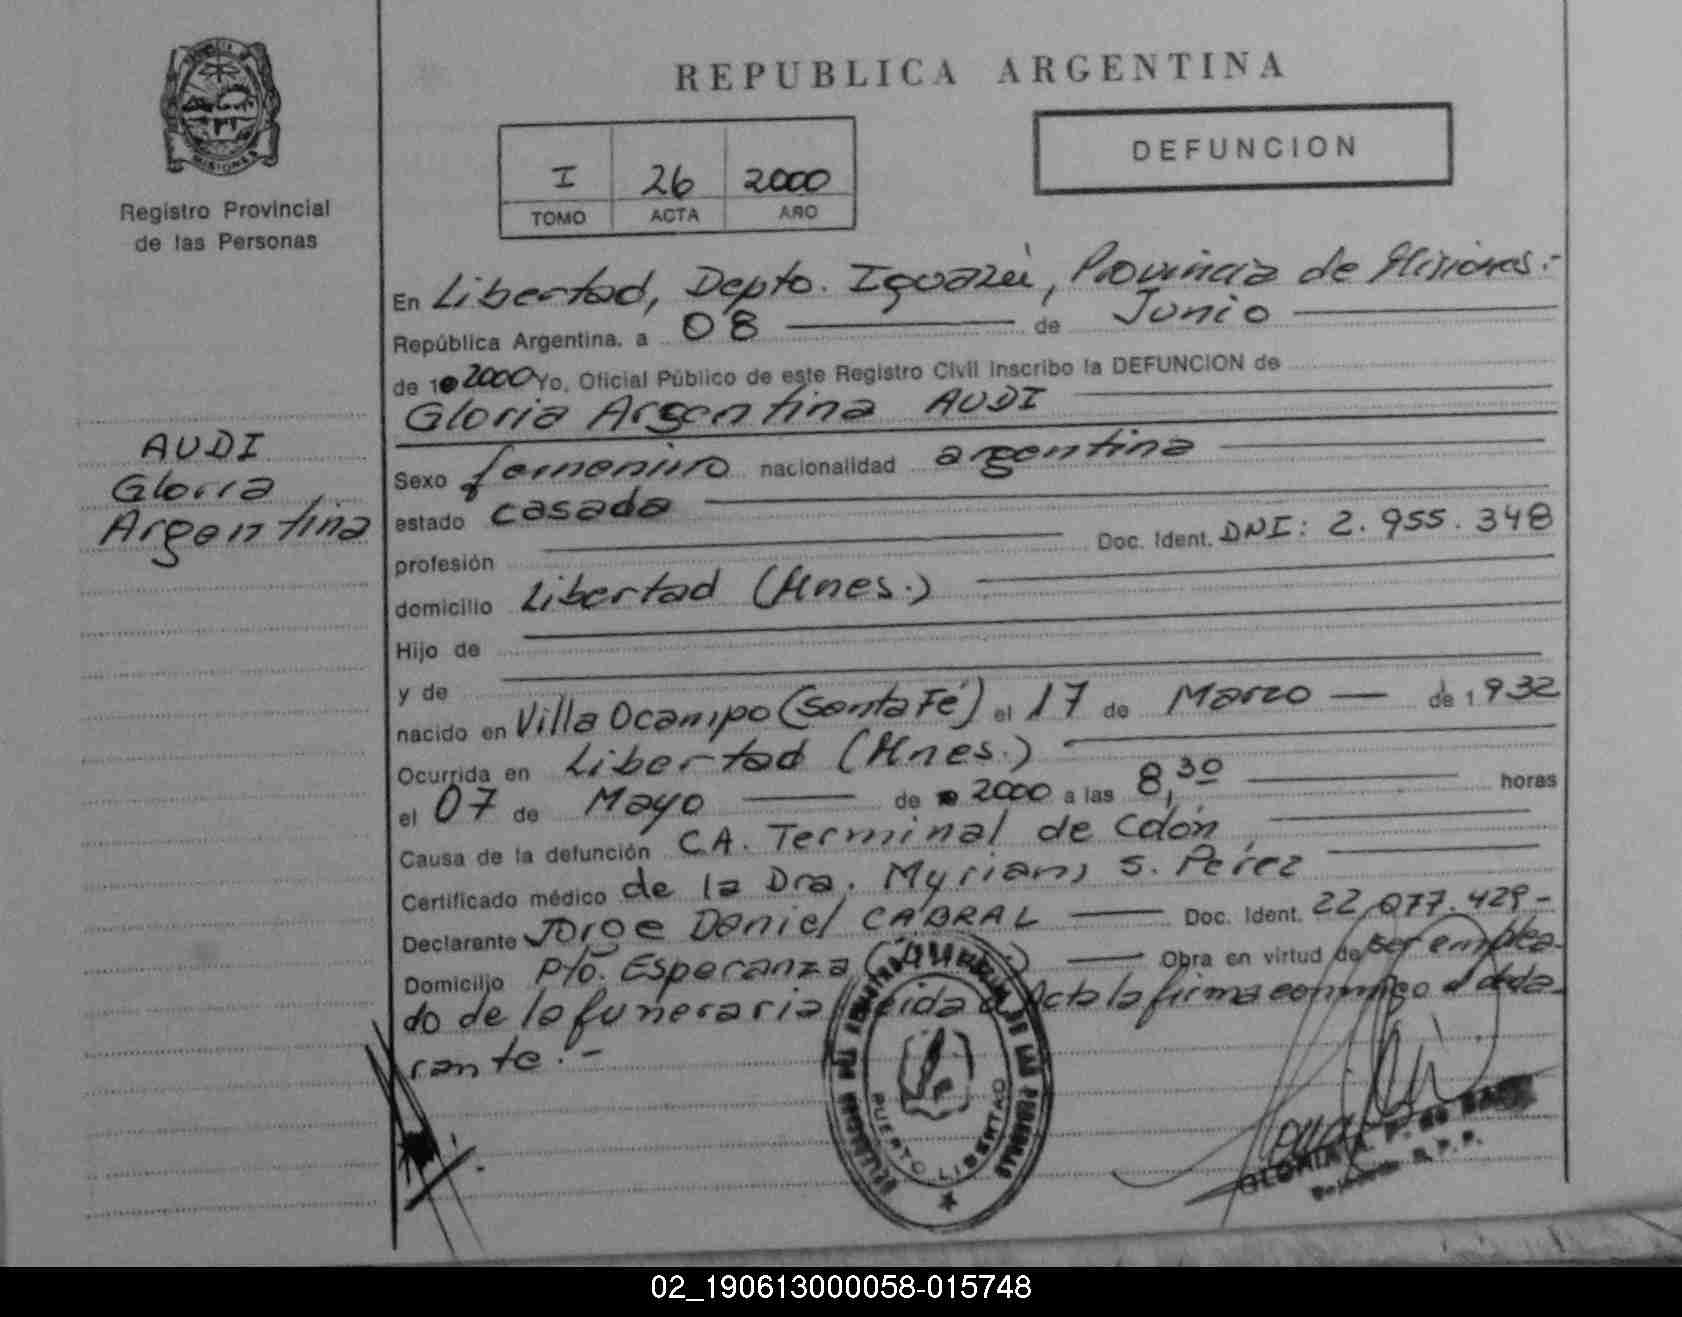 MISIONES
Registro Provincial
de las Personas
REPUBLICA ARGENTINA
I 26 2000
TOMO ACTA AÑO
DEFUNCION
AUDI
Gloria
Argentina
En Libertad, Depto. Iguazú, Provincia de Misiones.-
República Argentina, a 08 de Junio
de 2000 Yo, Oficial Público de este Registro Civil inscribo la DEFUNCION de
Gloria Argentina AUDI
Sexo femenino nacionalidad argentina
estado casada
profesión Doc. Ident. DNI: 2.955.348
domicilio Libertad (Mnes.)
Hijo de
y de
nacido en Villa Ocampo (Santa Fé) el 17 de Marzo de 1932
Ocurrida en Libertad (Mnes.)
el 07 de Mayo de 2000 a las 8,30 horas
Causa de la defunción CA. Terminal de Colón
Certificado médico de la Dra. Myriam S. Perez
Declarante Jorge Daniel CABRAL Doc. Ident. 22.077.429-
Domicilio Pto. Esperanza Obra en virtud de ser emplea-
do de la funeraria Leida el Acta la firma conmigo el decla-
rante.-
PUERTO LIBERTAD
GLORIA
02_190613000058-015748